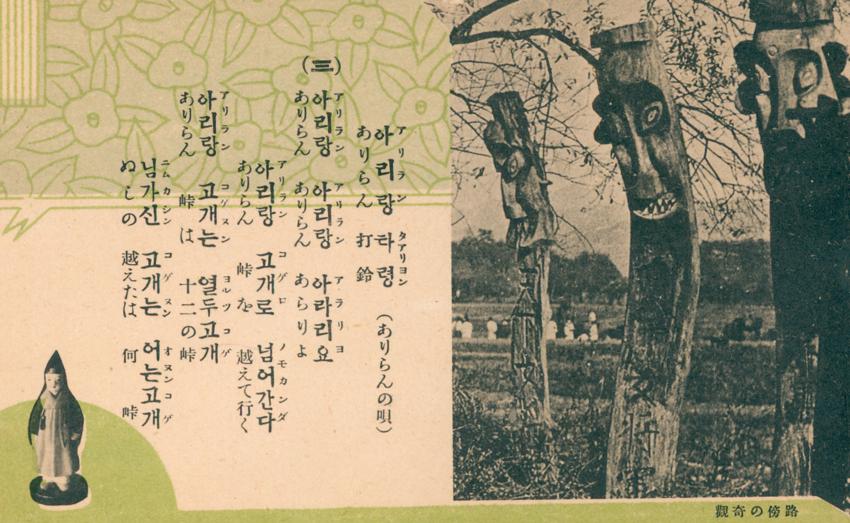 (三)
アリラン タアリヨン
아리랑 타령 (ありらんの唄)
ありらん 打鈴
アリラン アリラン アラリヨ
아리랑 아리랑 아라리요
ありらん ありらん あらりよ
アリラン コゲロ ノモカンダ
아리랑 고개로 넘어간다
ありらん 峠を 越えて行く
アリラン コゲヌン ヨルツコゲ
아리랑 고개는 열두고개
ありらん 峠は 十二の峠
ニムカシン コゲヌン オヌンコゲ
님가신 고개는 어는고개
ぬしの 越えたは 何峠
路傍の奇觀